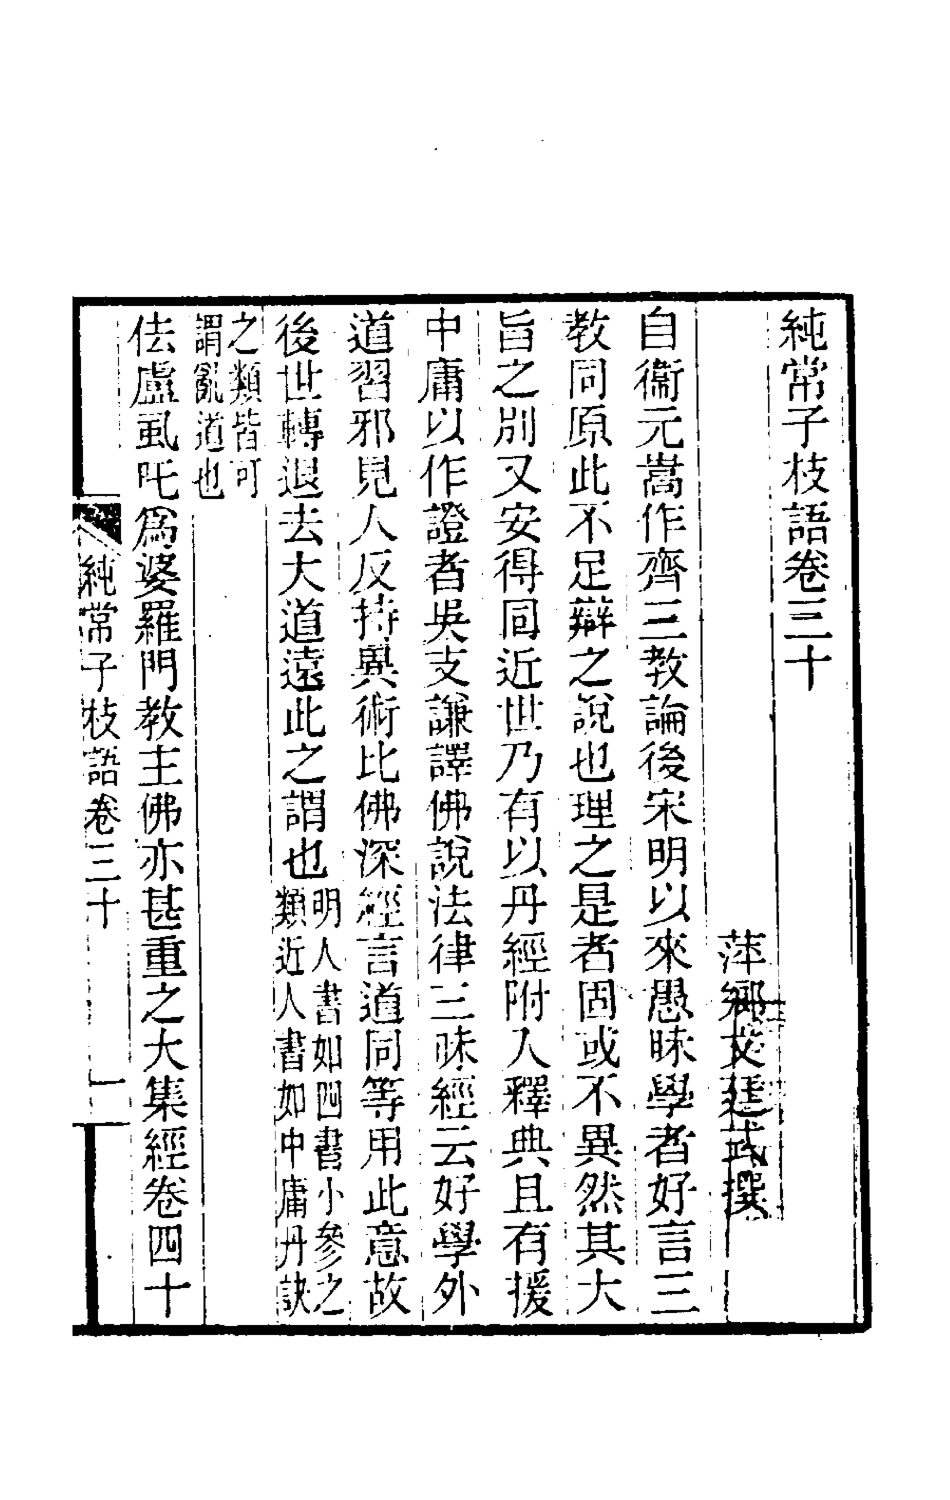 純常子枝語卷三十
萍鄉文廷式撰
自衞元嵩作齊三教論後宋明以來愚昧學者好言三
教同原此不足辯之說也理之是者固或不異然其大
旨之別又安得同近世乃有以丹經附入釋典且有援
中庸以作證者吳支謙譯佛說法律三昧經云好學外
道習邪見人反持異術比佛深經言道同等用此意故
後世轉退去大道遠此之謂也
明人書如四書小參之
類近人書如中庸丹訣
之類皆可
謂亂道也
佉盧虱吒為婆羅門教主佛亦甚重之大集經卷四十
純常子枝語卷三十
一